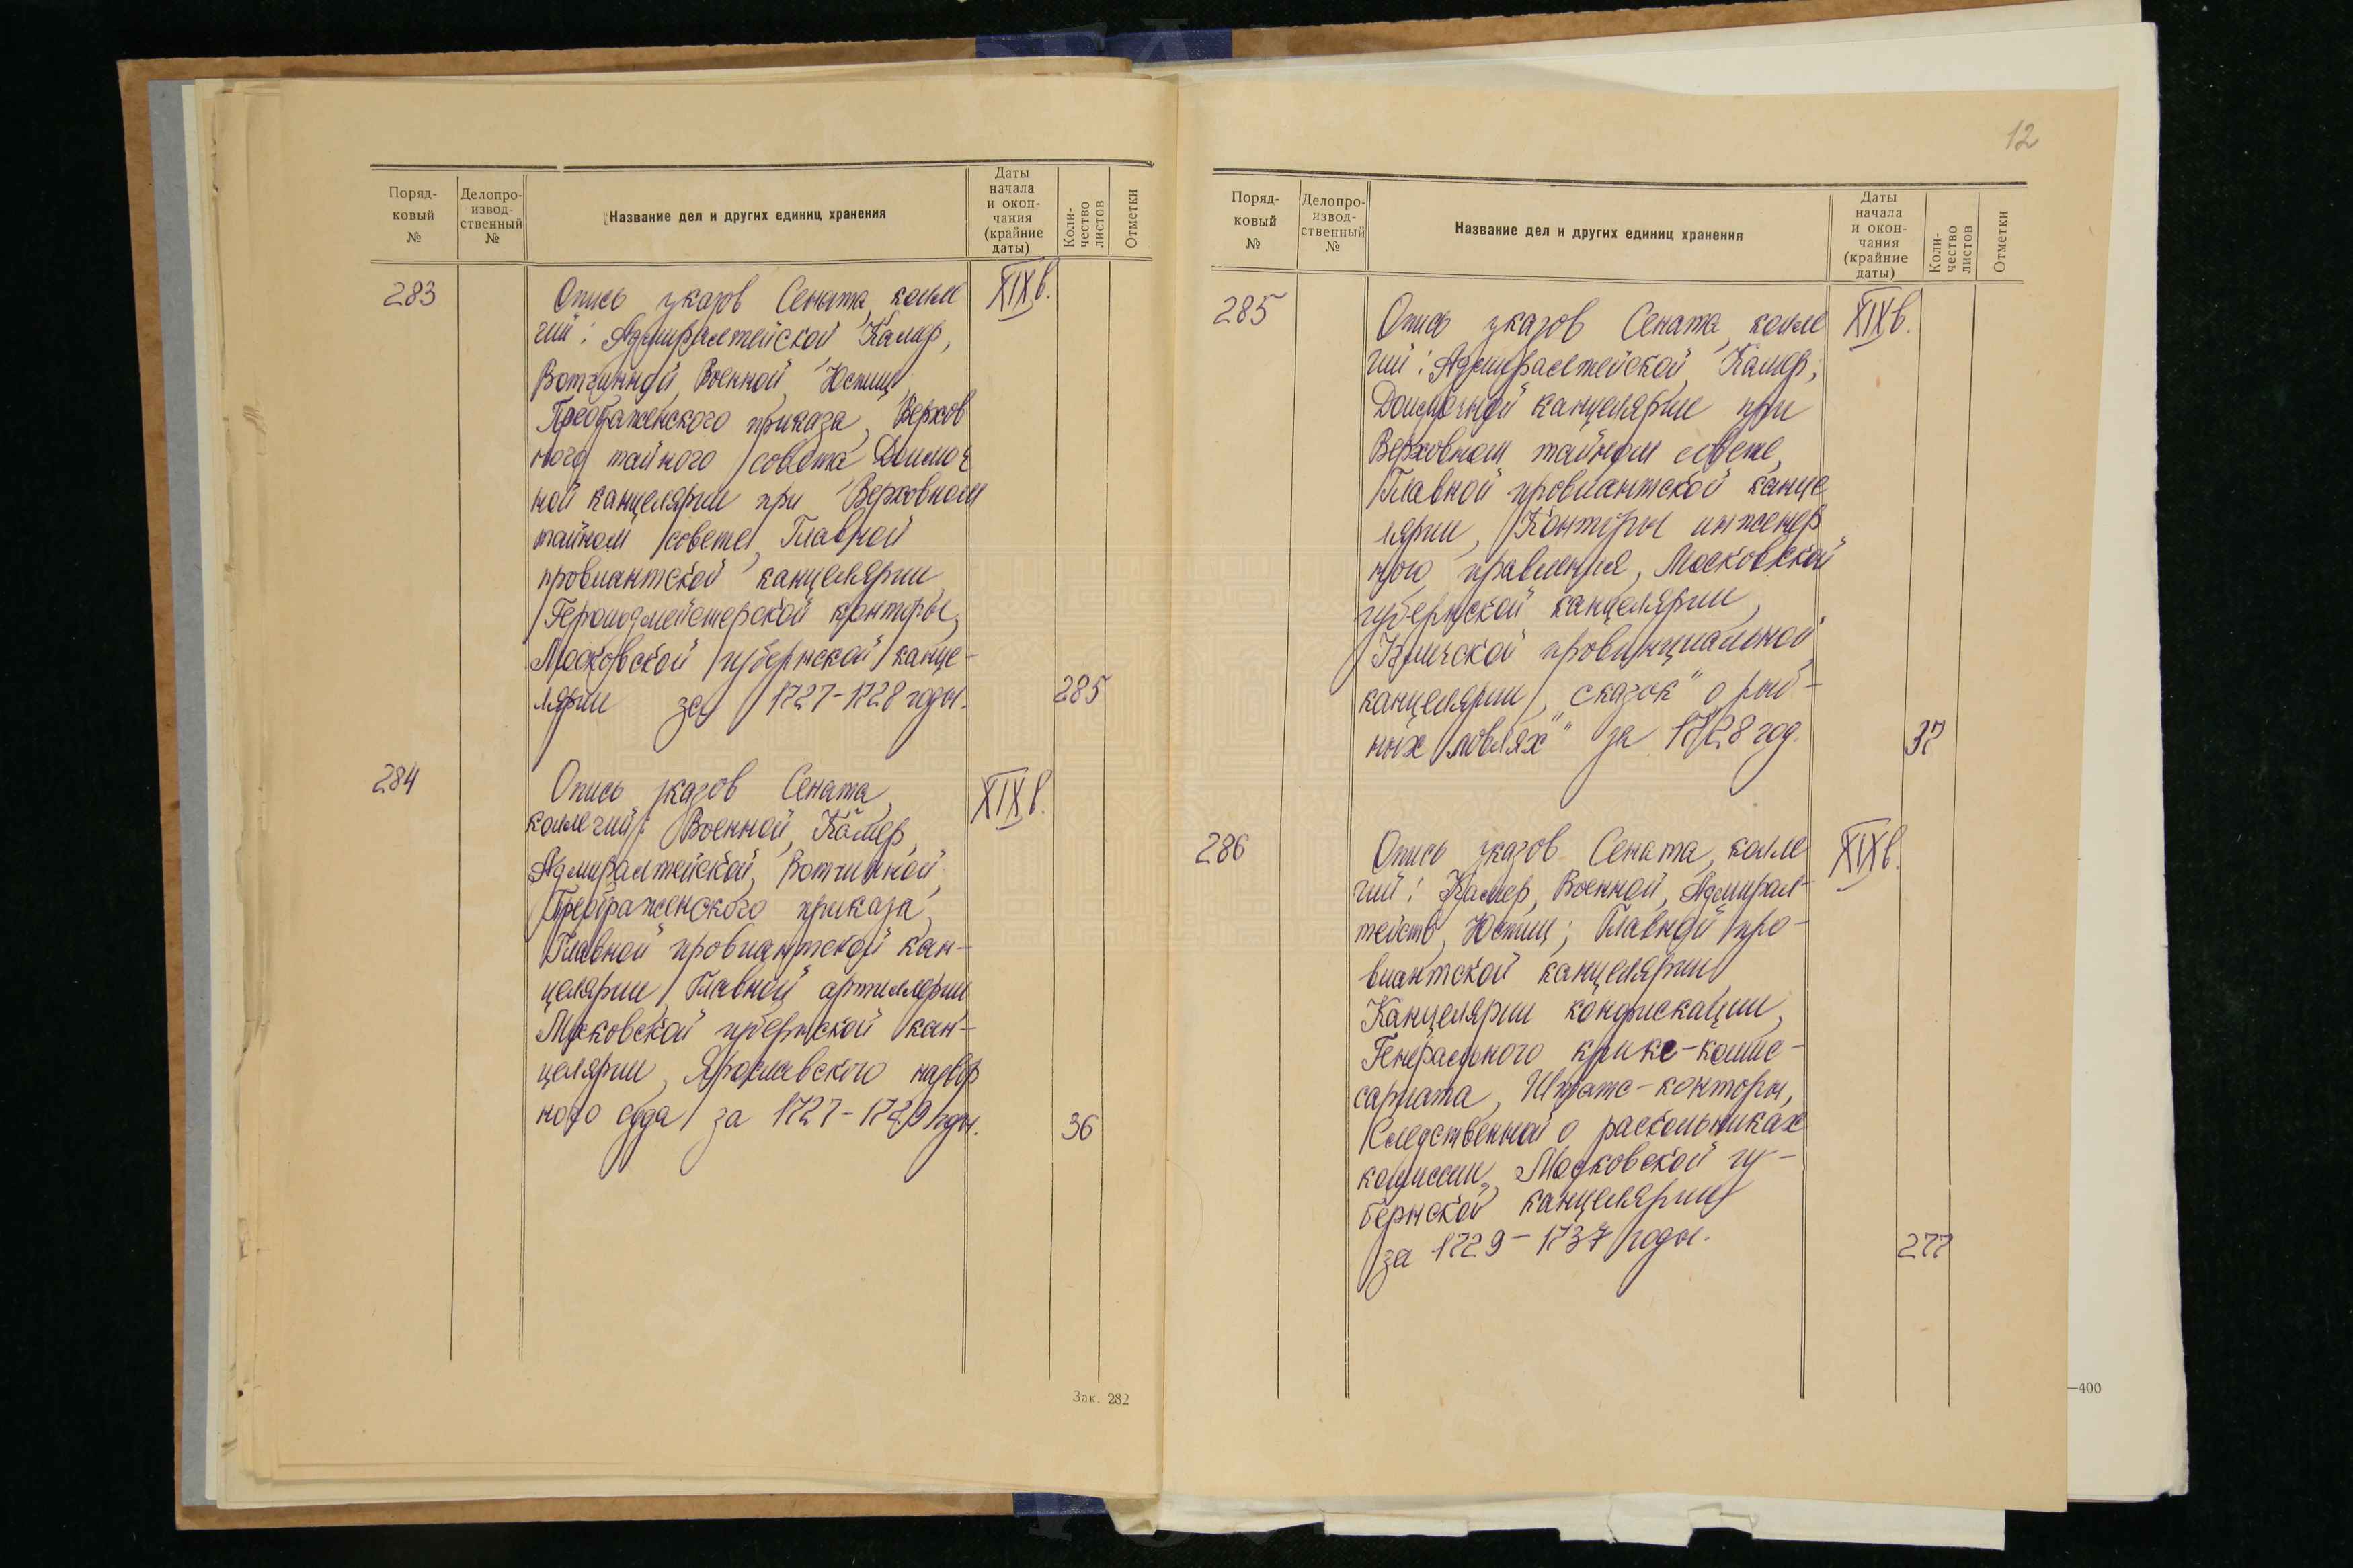 Поряд-
ковый
№
Делопро-
извод-
ственный
№
Название дел и других единиц хранения
Даты
начала
и окон-
чания
(крайние
даты)
Коли-
чество
листов
Отметки
283
Опись указов Сената, колле
XIX в.
гий: Адмиралтейской, Камер,
Вотчинной, Военной, Юстиц,
Преображенского приказа, Верхов
ного тайного совета, Доимоч
ной канцелярии при Верховном
тайном совете, Главной
провиантской канцелярии,
Герольдмейстерской конторы,
Московской губернской канце-
лярии за 1727-1728 годы.
285
284
Опись указов Сената,
XIX в.
коллегий: Военной, Камер,
Адмиралтейской, Вотчинной,
Преображенского приказа,
Главной провиантской кан-
целярии, Главной артиллерии
Московской губернской кан-
целярии, Ярославского надвор
ного суда за 1727-1729 годы.
36
Зак. 282
12
Поряд-
ковый
№
Делопро-
извод-
ственный
№
Название дел и других единиц хранения
Даты
начала
и окон-
чания
(крайние
даты)
Коли-
чество
листов
Отметки
285
Опись указов Сената, колле
XIX в.
гий: Адмиралтейской, Камер;
Доимочной канцелярии при
Верховном тайном совете,
Главной провиантской канце
лярии, Конторы инженер
ного правления, Московской
губернской канцелярии,
провинциальной
канцелярии, "сказок" о рыб-
ных "ловлях" за 1728 год.
37
286
Опись указов Сената, колле
XIX в.
гий: Камер, Военной, Адмирал-
тейств, Юстиц; Главной про-
виантской канцелярии,
Канцелярии конфискации,
Генерального крикс-комис-
сариата, Штатс-конторы,
Следственной о раскольниках
комиссии, Московской гу-
бернской канцелярии
за 1729-1737 годы.
277
—400